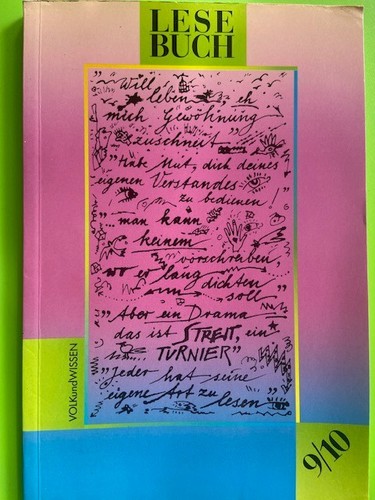 LESE
BUCH
„Will
leben eh
mich Gewöhnung
zuschneit"
„Habe Mut, dich deines
eigenen Verstandes
zu bedienen!"
„...man kann
keinem
vorschreiben,
wo er lang
dichten
soll"
„Aber ein Drama
das ist STREIT, ein
TURNIER"
„Jeder hat seine
eigene Art zu
lesen"
VOLKundWISSEN
9/10